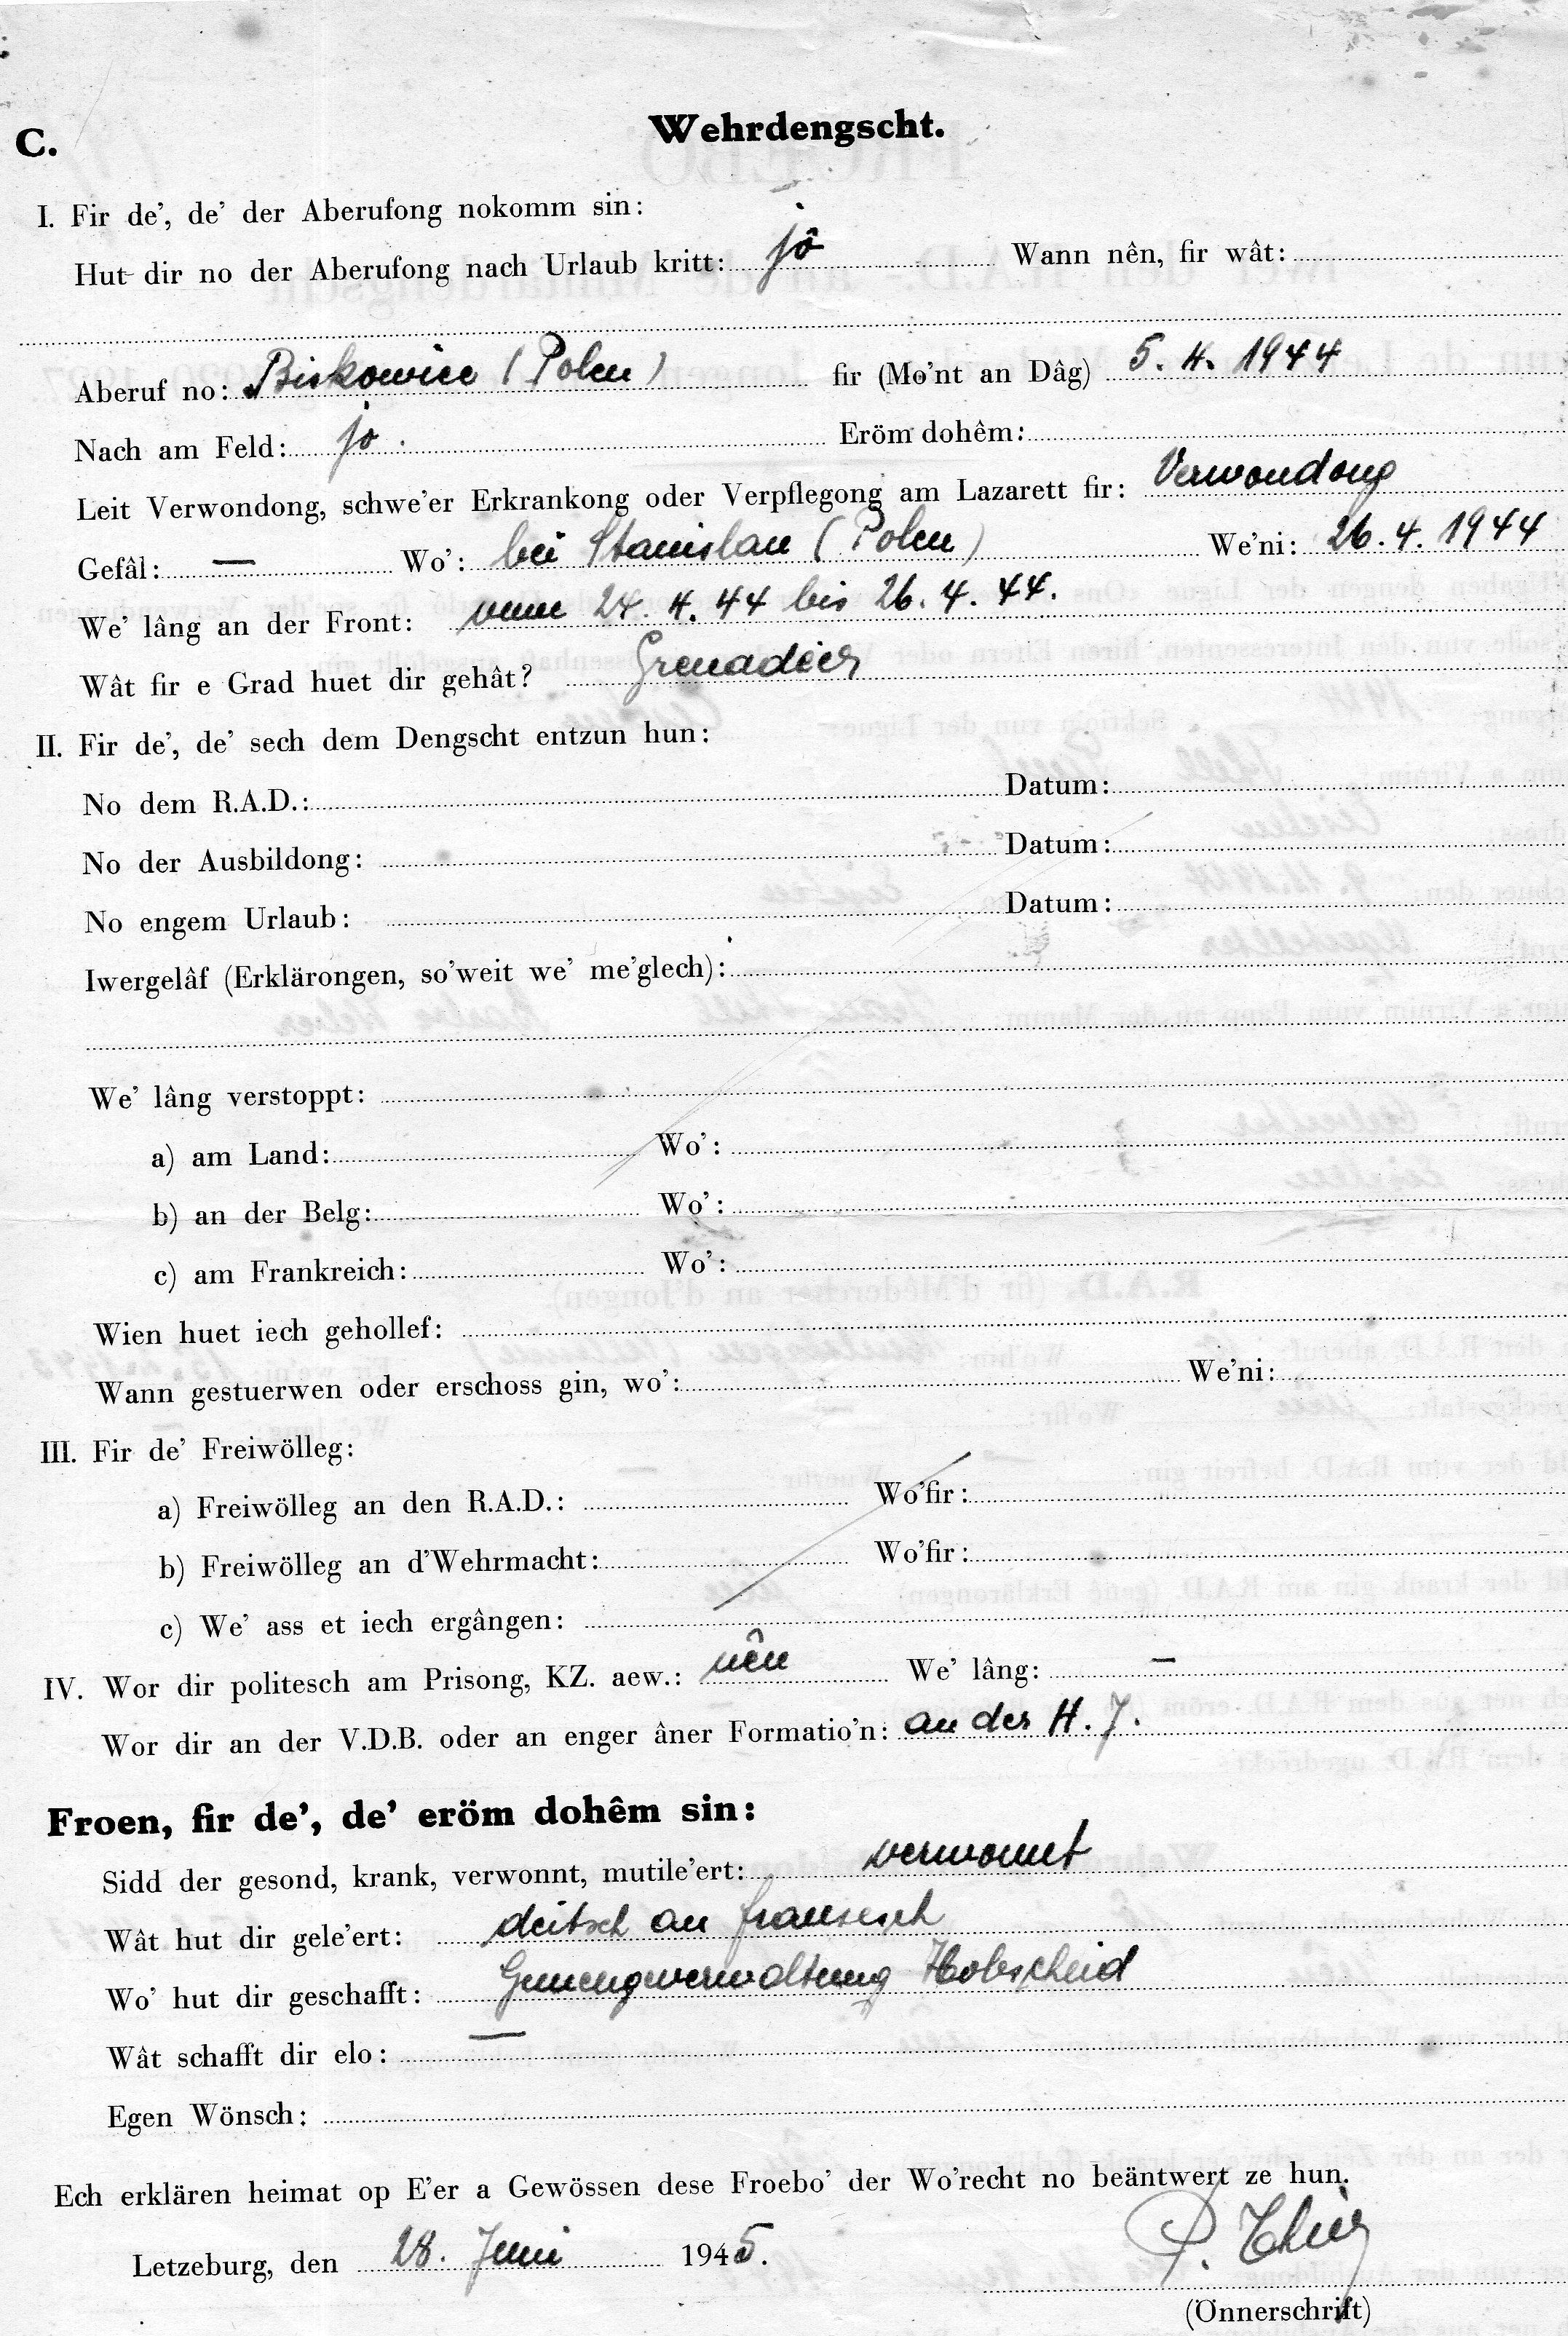 C.
Wehrdengscht.
I. Fir de’, de’ der Aberufong nokomm sin:
Hut dir no der Aberufong nach Urlaub kritt: jô Wann nên, fir wât:
Aberuf no: Biskowice (Polen) fir (Mo’nt an Dâg) 5. 4. 1944
Nach am Feld: jo. Eröm dohêm:
Leit Verwondong, schwe’er Erkrankong oder Verpflegong am Lazarett fir: Verwondong
Gefâl: — Wo’: bei Stanislau (Polen) We’ni: 26. 4. 1944
We’ lâng an der Front: vum 24. 4. 44 bis 26. 4. 44.
Wât fir e Grad huet dir gehât? Grenadier
II. Fir de’, de’ sech dem Dengscht entzun hun:
No dem R.A.D.: Datum:
No der Ausbildong: Datum:
No engem Urlaub: Datum:
Iwergelâf (Erklärongen, so’weit we’ me’glech):
We’ lâng verstoppt:
a) am Land: Wo’:
b) an der Belg: Wo’:
c) am Frankreich: Wo’:
Wien huet iech gehollef:
Wann gestuerwen oder erschoss gin, wo’: We’ni:
III. Fir de’ Freiwölleg:
a) Freiwölleg an den R.A.D.: Wo’fir:
b) Freiwölleg an d’Wehrmacht: Wo’fir:
c) We’ ass et iech ergângen:
IV. Wor dir politesch am Prisong, KZ. aew.: nên We’ lâng: —
Wor dir an der V.D.B. oder an enger âner Formatio’n: an der H. J.
Froen, fir de’, de’ eröm dohêm sin:
Sidd der gesond, krank, verwonnt, mutile’ert: verwonnt
Wât hut dir gele’ert: deitsch an fransesch
Wo’ hut dir geschafft: Gemengverwaltung Hobscheid
Wât schafft dir elo: —
Egen Wönsch:
Ech erklären heimat op E’er a Gewössen dese Froebo’ der Wo’recht no beäntwert ze hun.
Letzeburg, den 28. Juni 1945.
P.
(Önnerschrift)